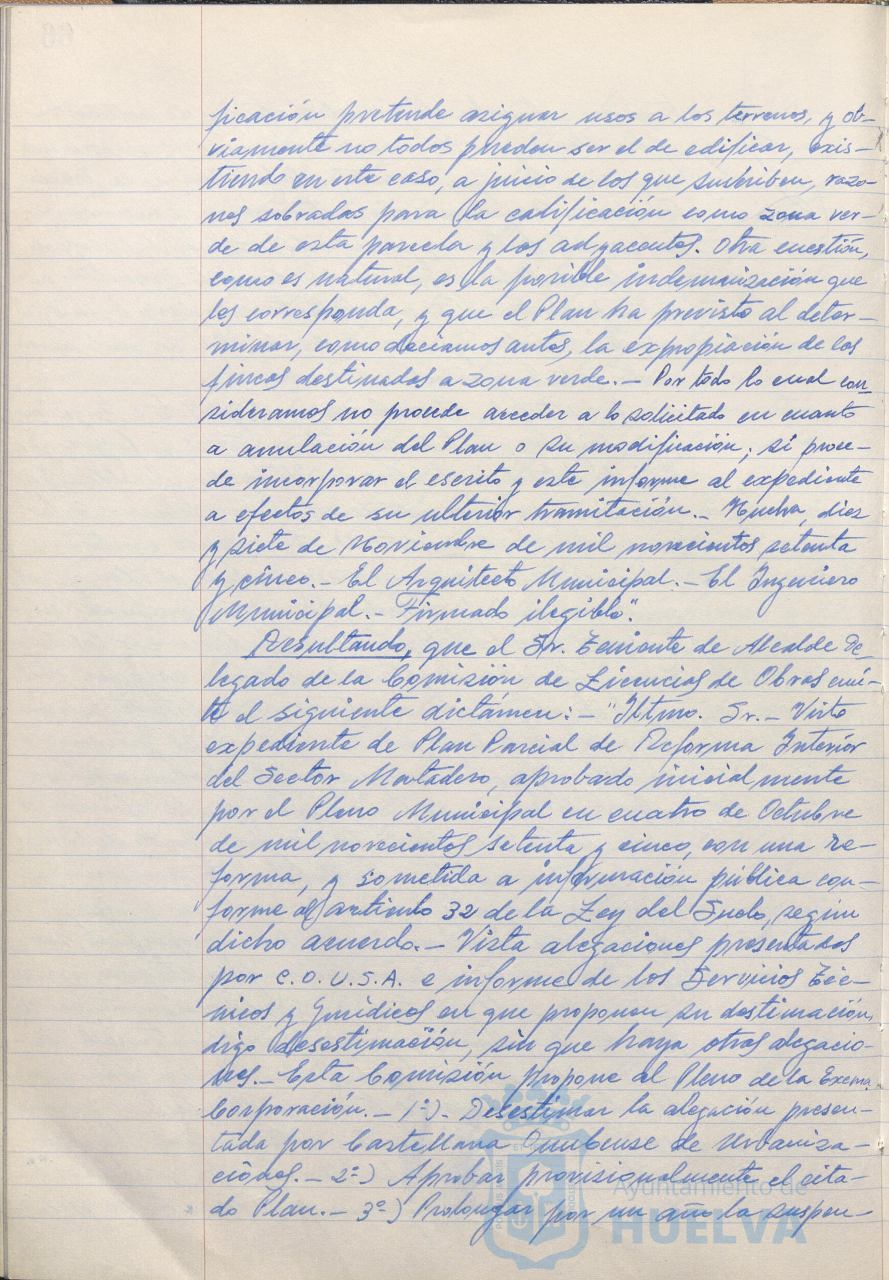 ficación pretende asignar usos a los terrenos, y ob-
viamente no todos pueden ser el de edificar, exis-
tiendo en este caso, a juicio de los que suscriben, razo-
nes sobradas para la calificación como zona ver-
de de esta parcela y los adyacentes. Otra cuestión,
como es natural, es la posible indemnización que
les corresponda, y que el Plan ha previsto al deter-
minar, como decíamos antes, la expropiación de las
fincas destinadas a zona verde.- Por todo lo cual con
sideramos no procede acceder a lo solicitado en cuanto
a anulación del Plan o su modificación; si proce-
de incorporar el escrito y este informe al expediente
a efectos de su ulterior tramitación.- Huelva, diez
y siete de Noviembre de mil novecientos setenta
y cinco.- El Arquitecto Municipal.- El Ingeniero
Municipal.- Firmado ilegible".
Resultando, que el Sr. Teniente de Alcalde De-
legado de la Comisión de Licencias de Obras emi-
te el siguiente dictámen:- "Iltmo. Sr.- Visto
expediente de Plan Parcial de Reforma Interior
del Sector Matadero, aprobado inicialmente
por el Pleno Municipal en cuatro de Octubre
de mil novecientos setenta y cinco, con una re-
forma, y sometida a información pública con-
forme al artículo 32 de la Ley del Suelo, según
dicho acuerdo.- Vista alegaciones presentadas
por C.O.U.S.A. e informe de los Servicios Téc-
nicos y Jurídicos en que proponen su destimación,
digo desestimación, sin que haya otras alegacio-
nes.- Esta Comisión propone al Pleno de la Excma.
Corporación.- 1º).- Desestimar la alegación presen-
tada por Castellana Onubense de Urbaniza-
ciones.- 2º-) Aprobar provisionalmente el cita-
do Plan.- 3º-) Prolongar por un año la suspen-
Ayuntamiento de
HUELVA